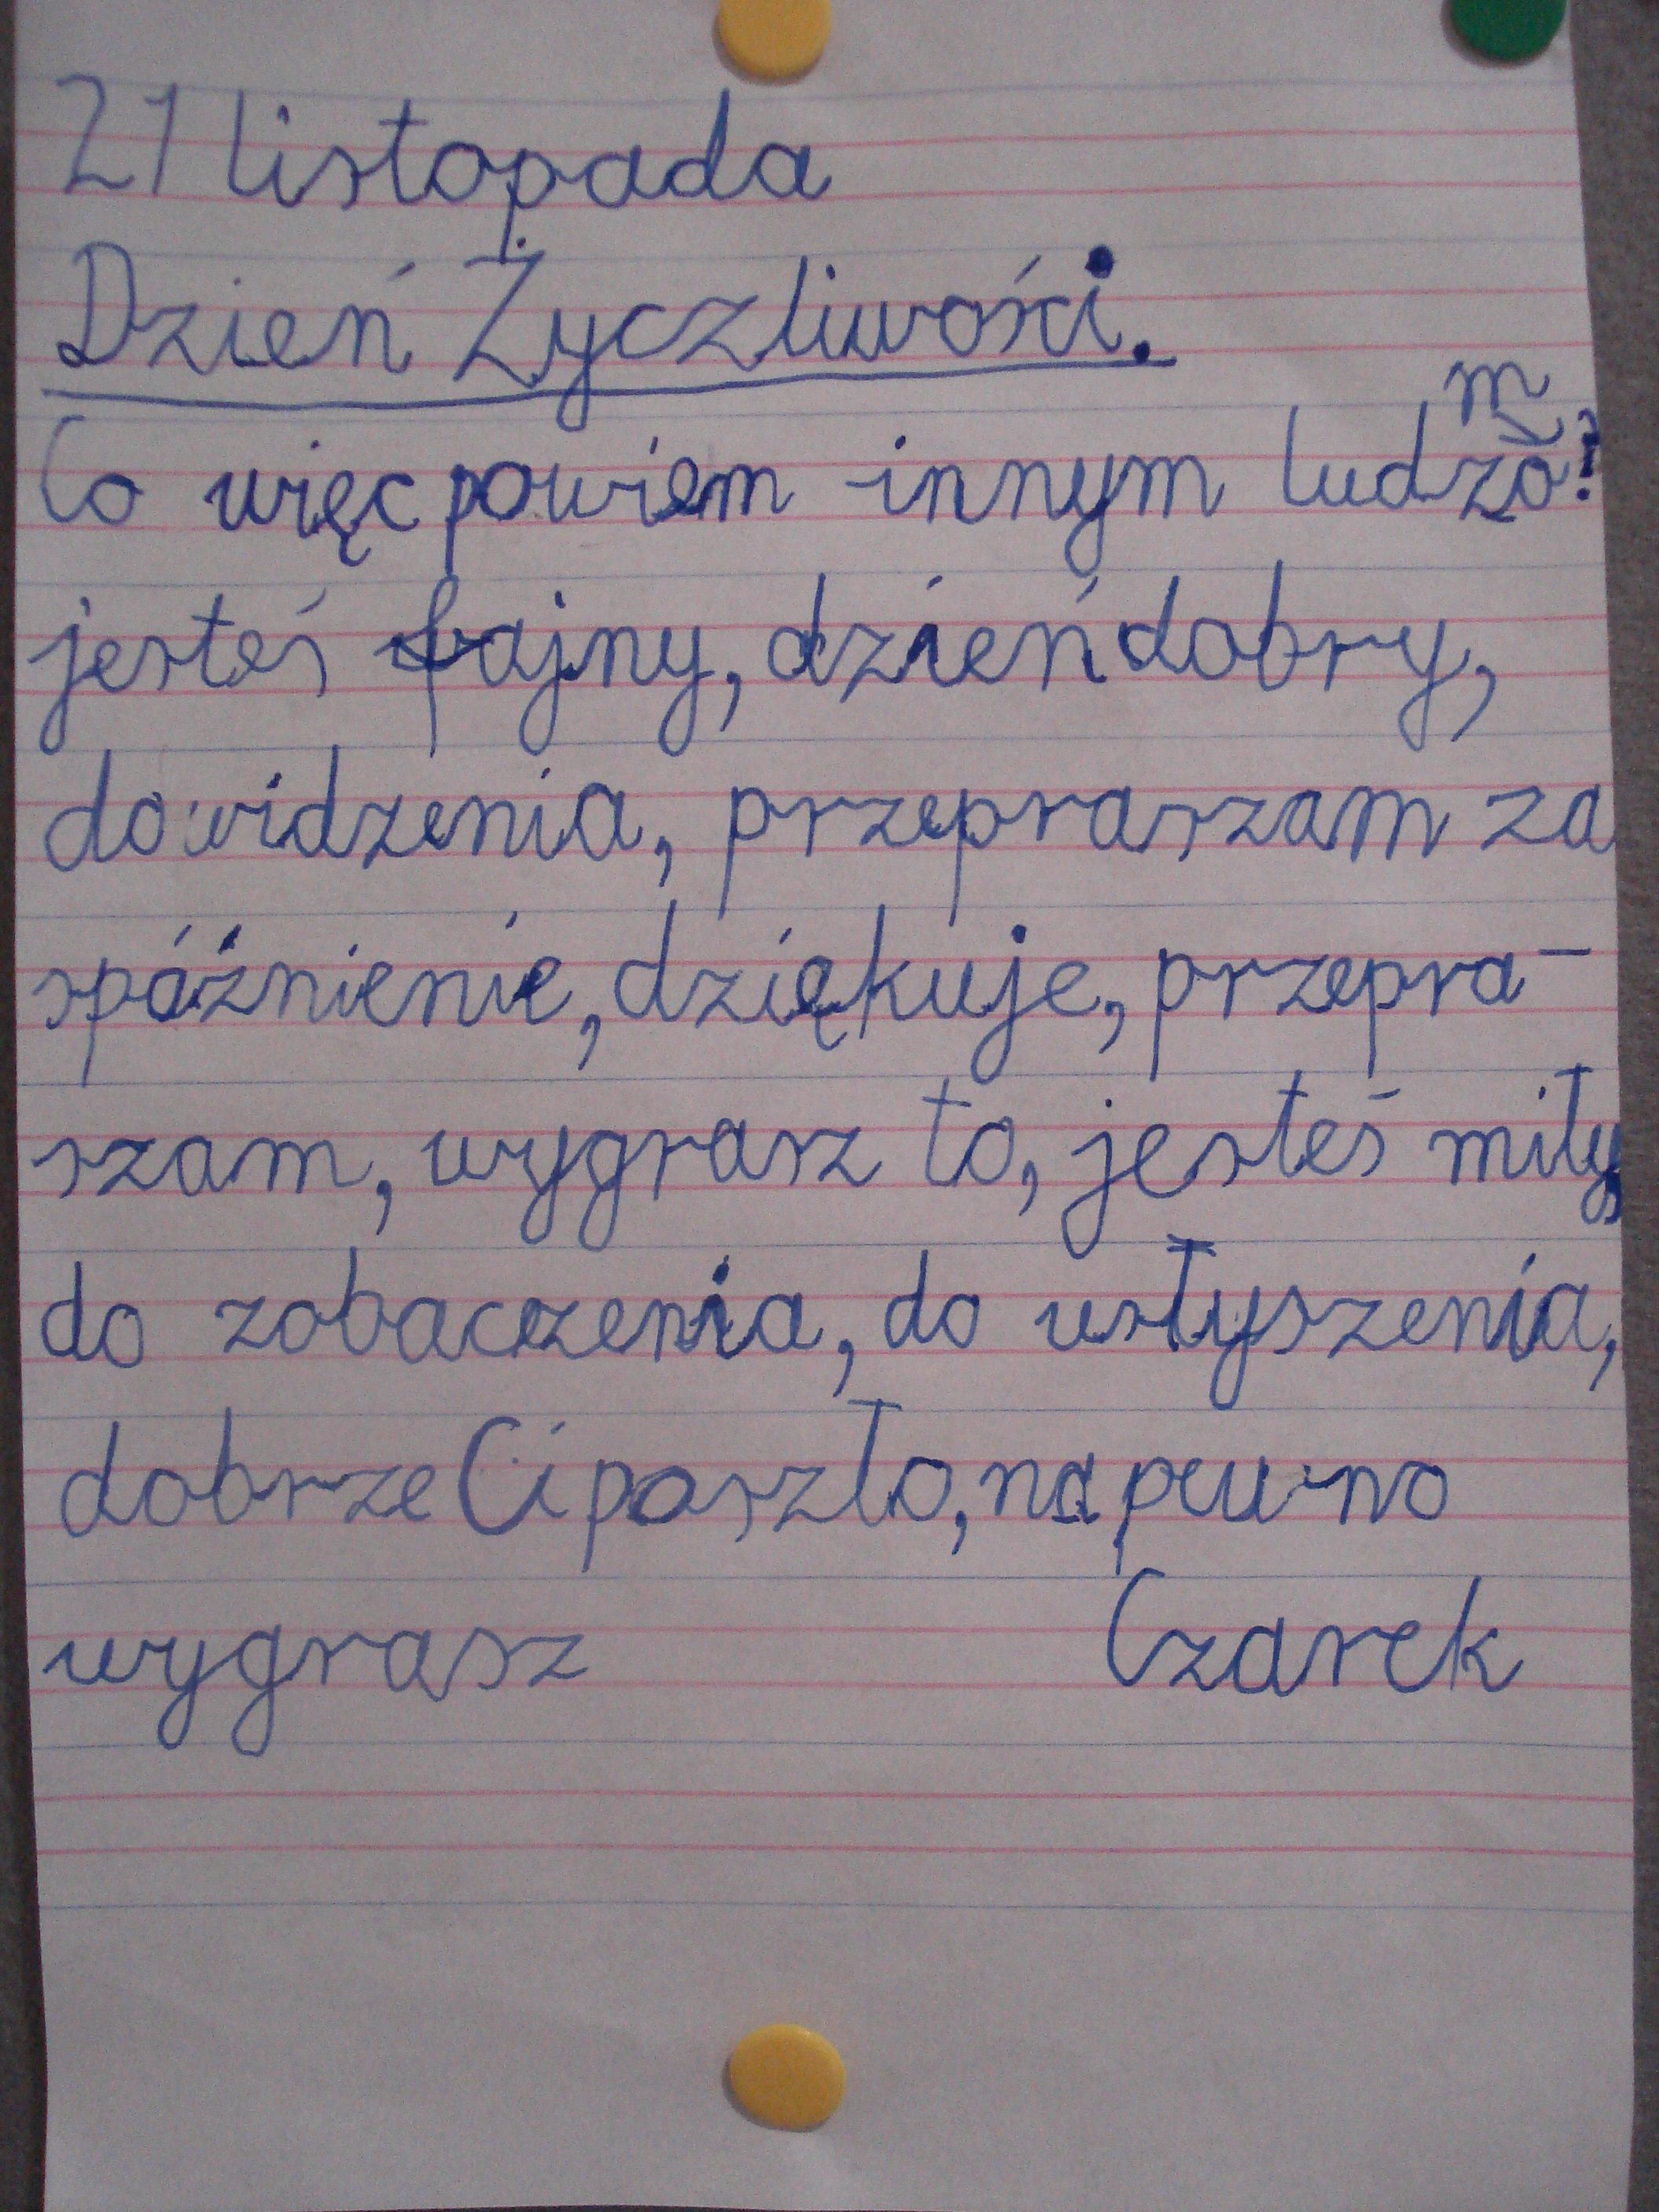 21 listopada
Dzień Życzliwości.
Co więc powiem innym ludzom?
jesteś fajny, dzień dobry,
dowidzenia, przepraszam za
spóźnienie, dziękuje, przepra-
szam, wygrasz to, jesteś miły,
do zobaczenia, do usłyszenia,
dobrze Ci poszło, na pewno
wygrasz Czarek